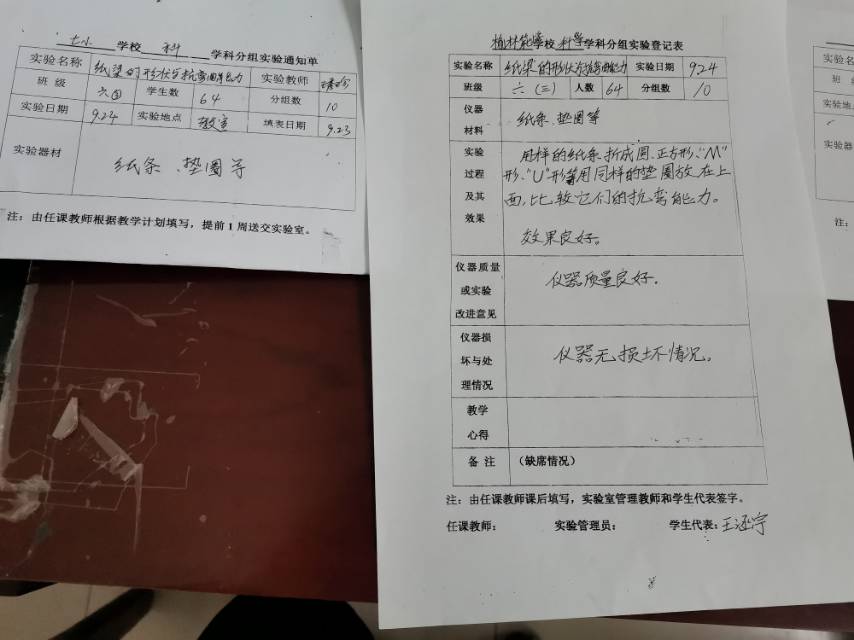 七小 学校 科 学科分组实验通知单
实验名称 纸梁的形状与抗弯曲能力 实验教师
班 级 学生数 64 分组数 10
实验日期 9.24 实验地点 教室 填表日期 9.23
实验器材 纸条、垫圈等
注：由任课教师根据教学计划填写，提前 1 周送交实验室。
学校 科学 学科分组实验登记表
实验名称 纸梁的形状与抗弯曲能力 实验日期 9.24
班级 六（三） 人数 64 分组数 10
仪器
材料
纸条、垫圈等
实验
过程
及其
效果
用样的纸条、折成圆、正方形、“M”
形、“U”形等用同样的垫圈放在上
面，比较它们的抗弯能力。
效果良好。
仪器质量
或实验
改进意见
仪器质量良好.
仪器损
坏与处
理情况
仪器无损坏情况。
教学
心得
备 注 （缺席情况）
注：由任课教师课后填写，实验室管理教师和学生代表签字。
任课教师： 实验管理员： 学生代表：
实验名
班 级
实验地
实验器
注：